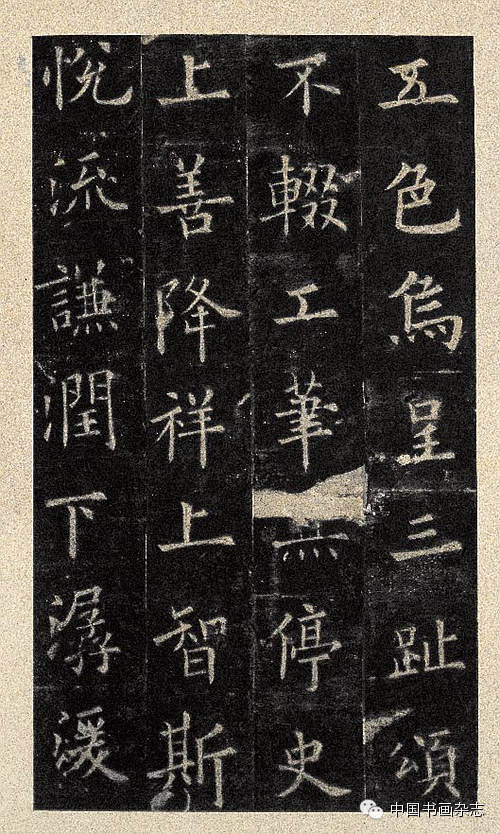 五色烏呈三趾頌
不輟工筆無停史
上善降祥上智斯
悅流謙潤下潺湲
中国书画杂志